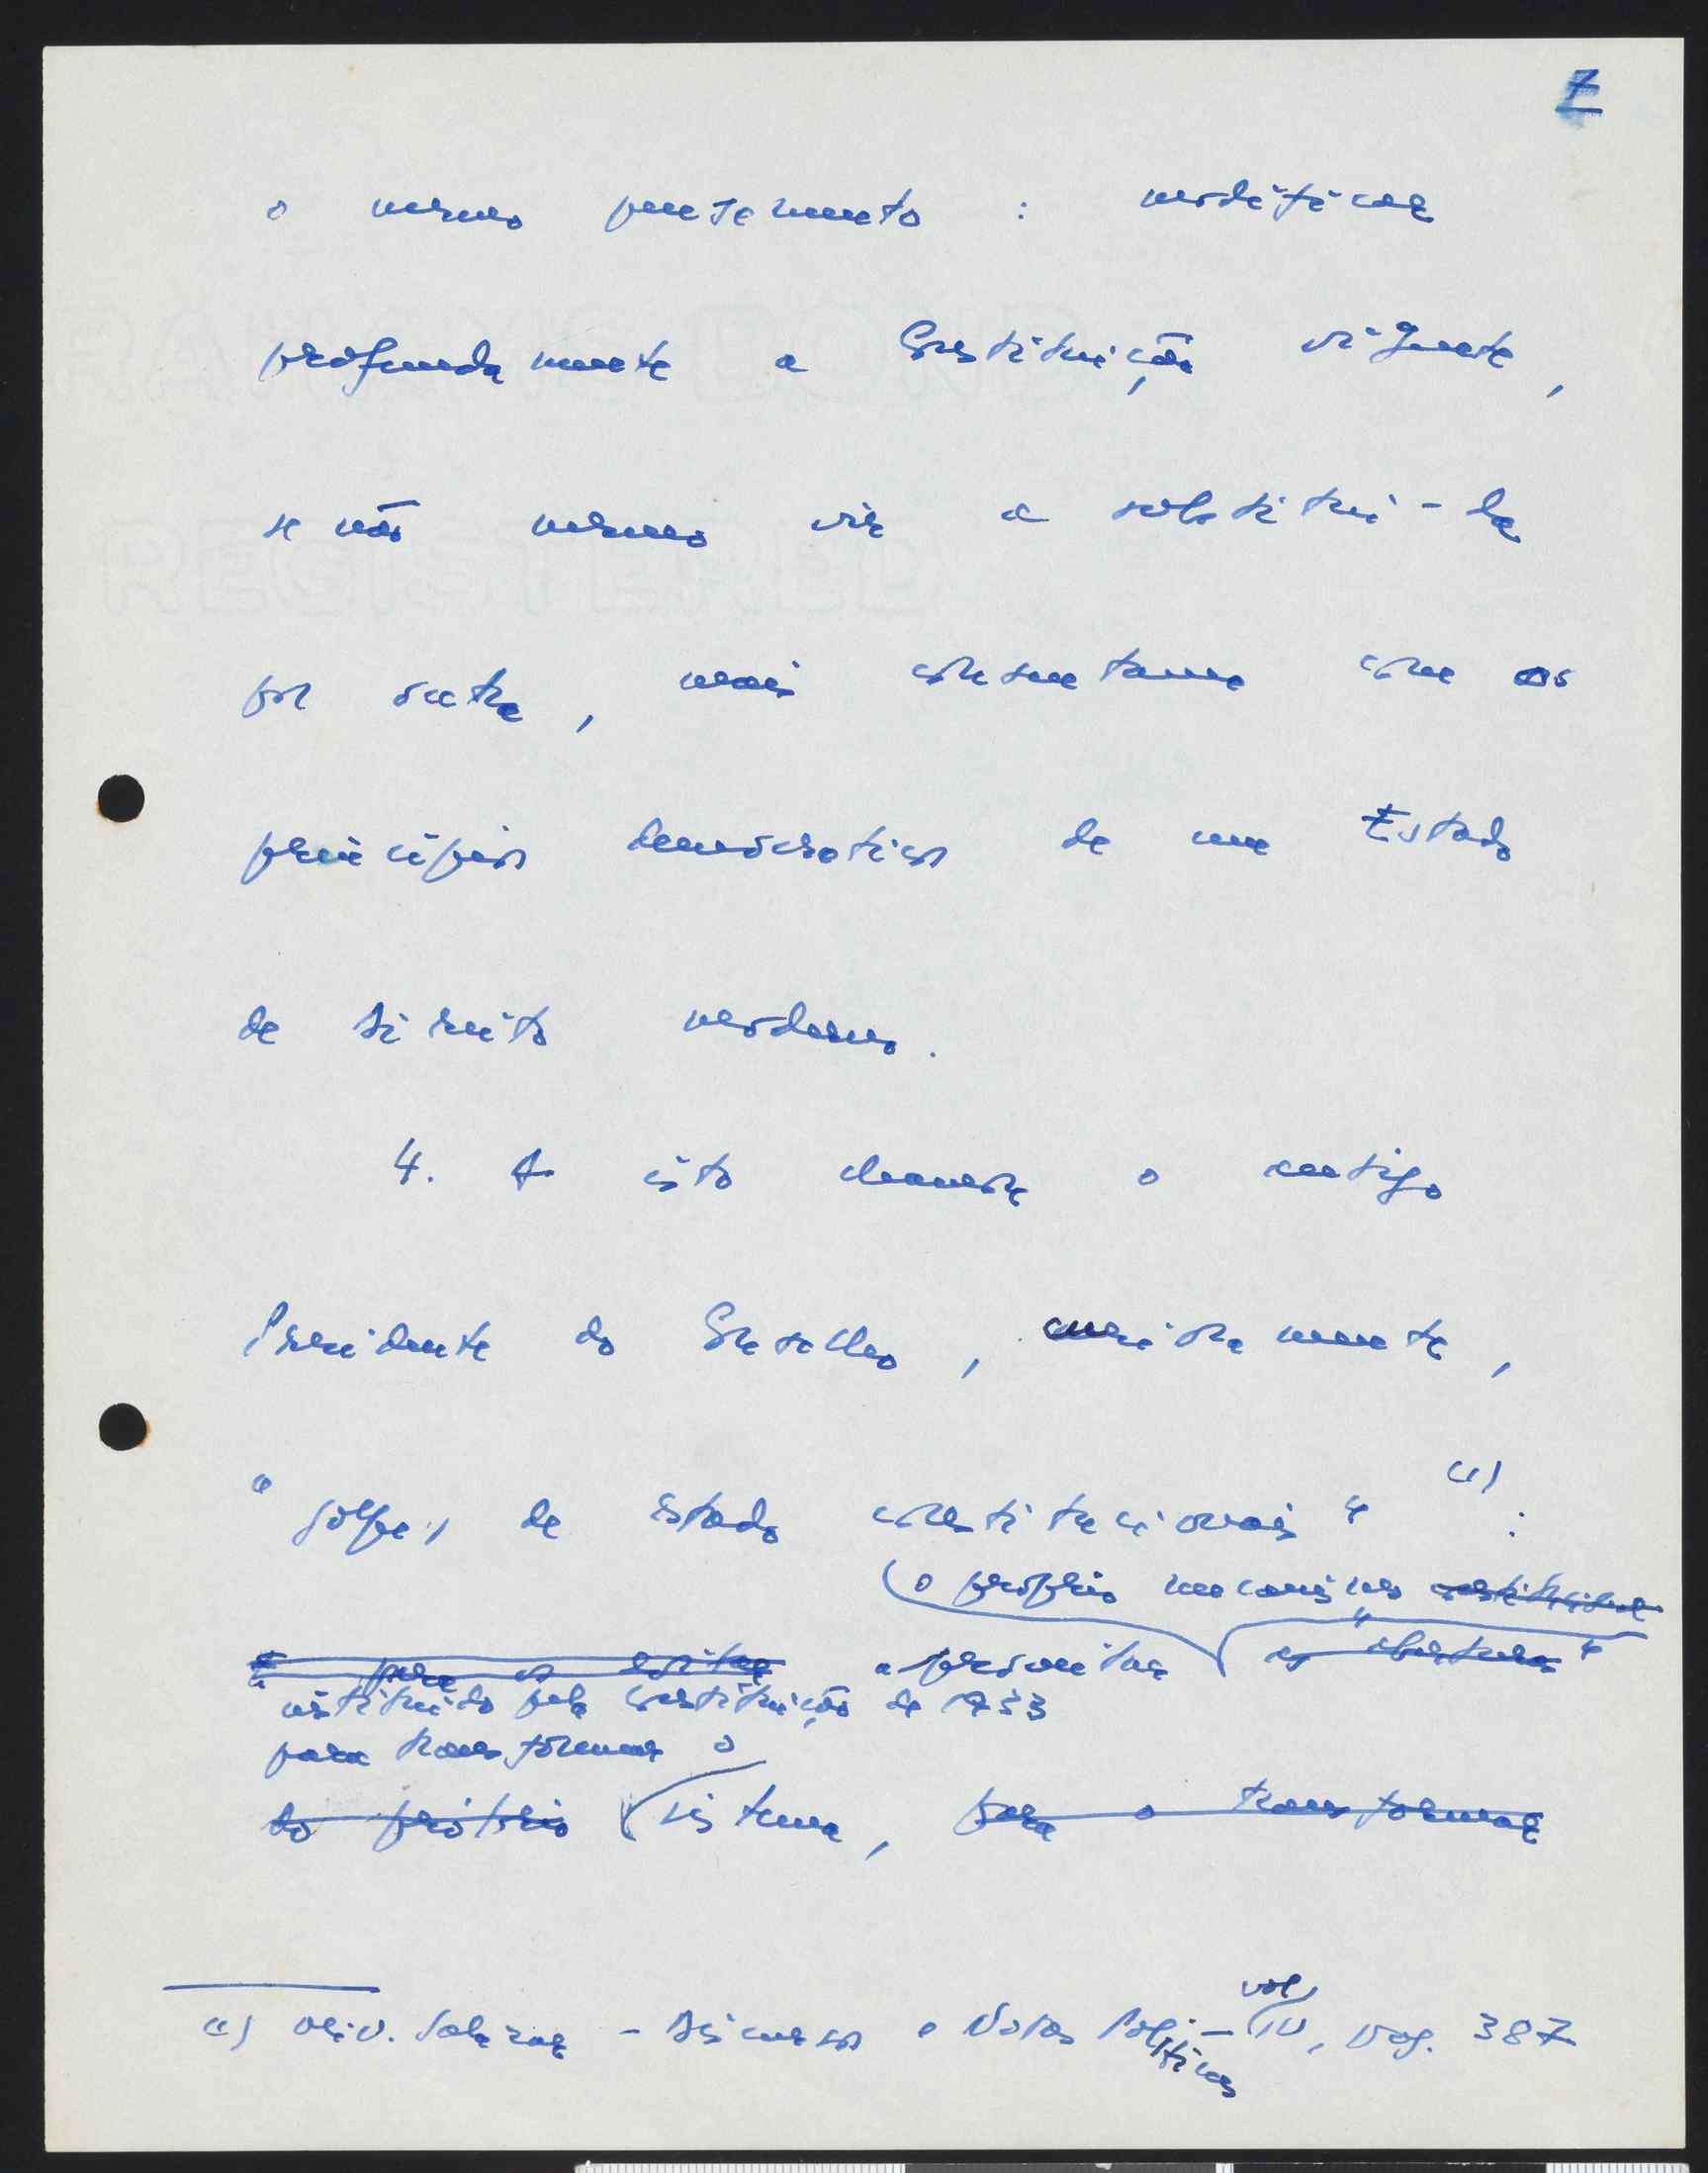 7
o mesmo pensamento : modificar
profundamente a Constituição vigente,
se não mesmo vir a substitui-la
por outra, mais consentanea com os
princípios democraticos de um Estado
de Direito moderno.
4. A isto chamou o antigo
Presidente do Conselho, curiosamente,
"golpes de Estado constitucionais" (1) :
o próprio mecanismo constitucional
para os evitar aproveitar as "aberturas"
instituido pela Constituição de 1933
para transformar o
do próprio sistema, para o transformar
(1) Oliv. Salazar - Discursos e Notas Politicas - vol IV, pag. 387